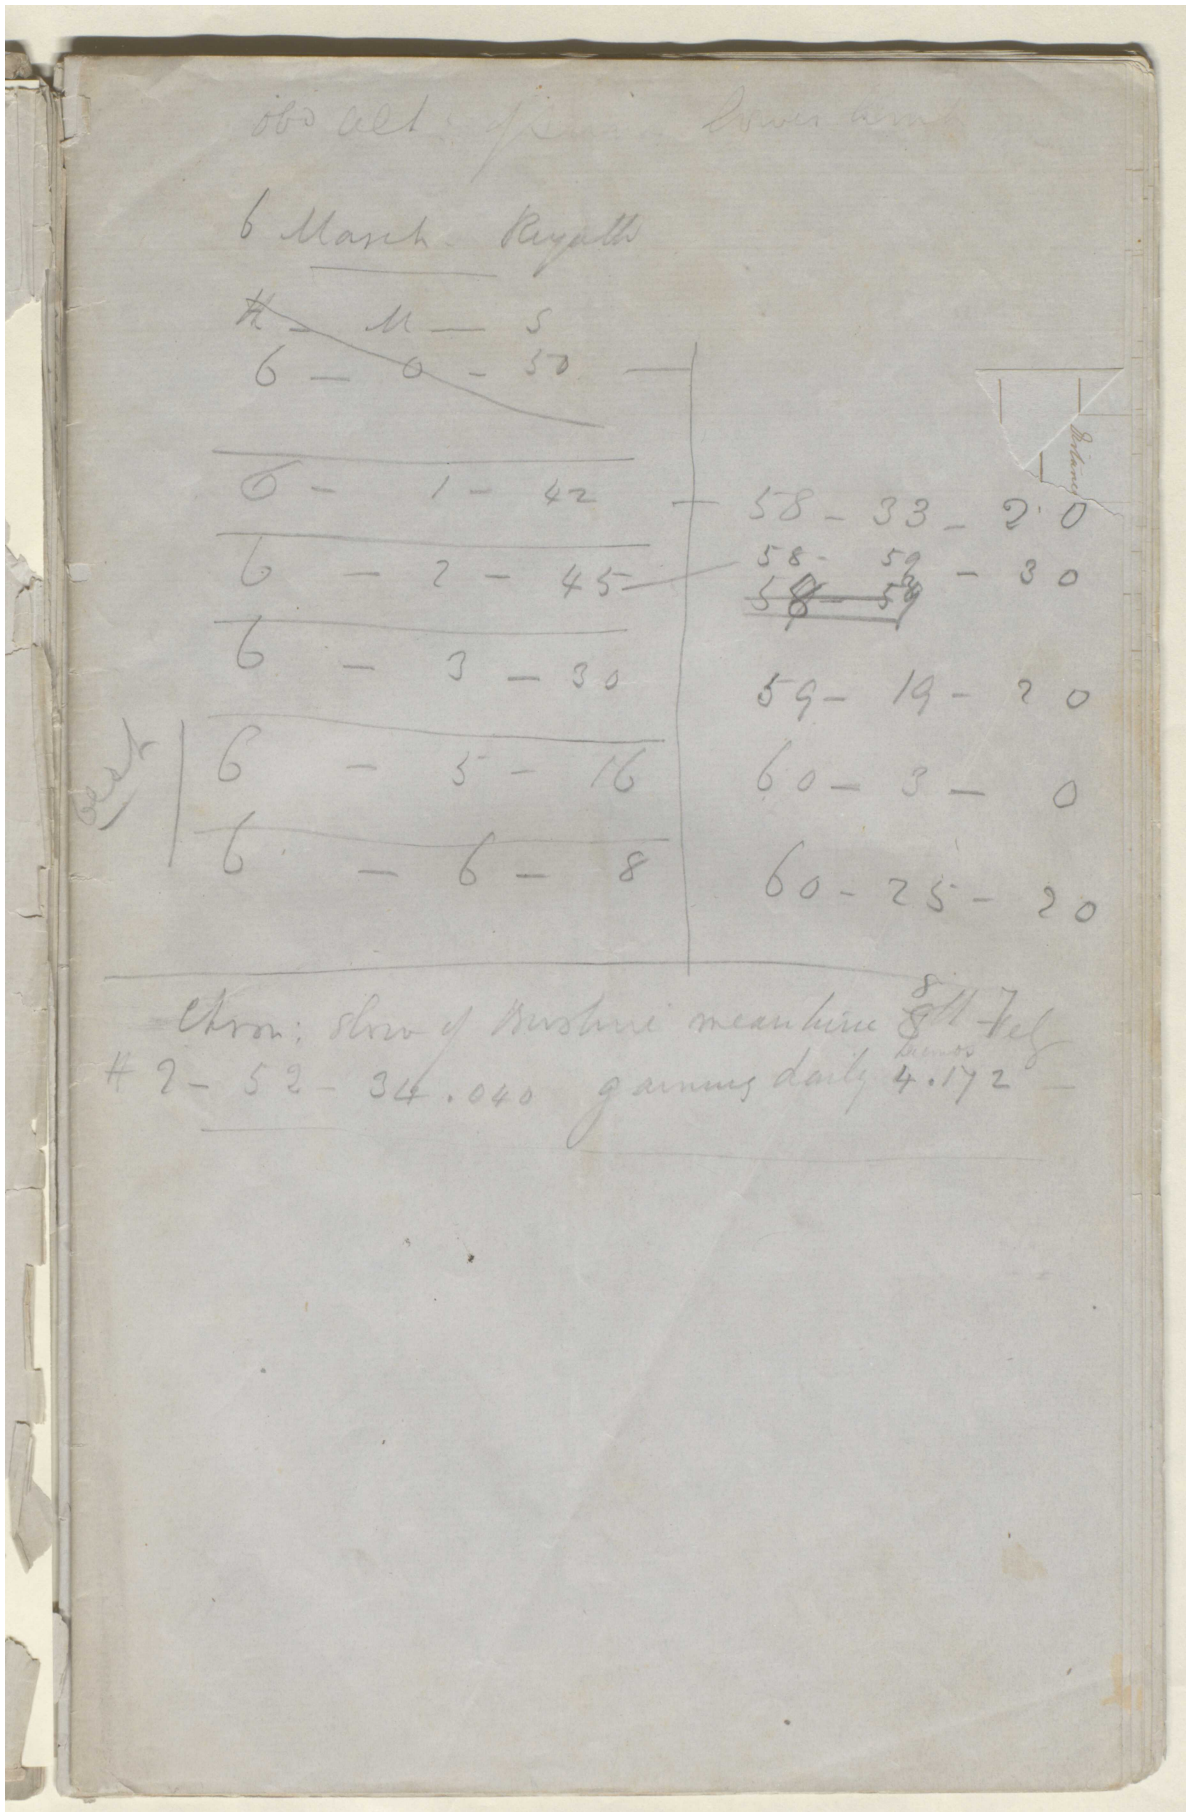 obs alt: of sun - lower limb
6 March - Riyadh
H - M - S
6 - 0 - 50 -
6 - 1 - 42 - 58 - 33 - 20
6 - 2 - 45 - 58 - 59 - 30
58 - 59
6 - 3 - 30 59 - 19 - 20
best
6 - 5 - 16 60 - 3 - 0
6 - 6 - 8 60 - 25 - 20
Chron: slow of Bushire mean time 8th Feb
8
H 2 - 52 - 34.040 gaining daily 4.172 -
Distance